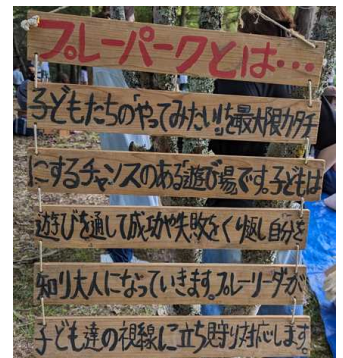 プレーパークとは…
子どもたちの「やってみたい!」を最大限カタチ
にするチャンスのある「遊び場」です。子どもは
遊びを通して成功や失敗をくり返し自分を
知り大人になっていきます。プレーリーダーが
子ども達の視線に立ち見守り対応します。